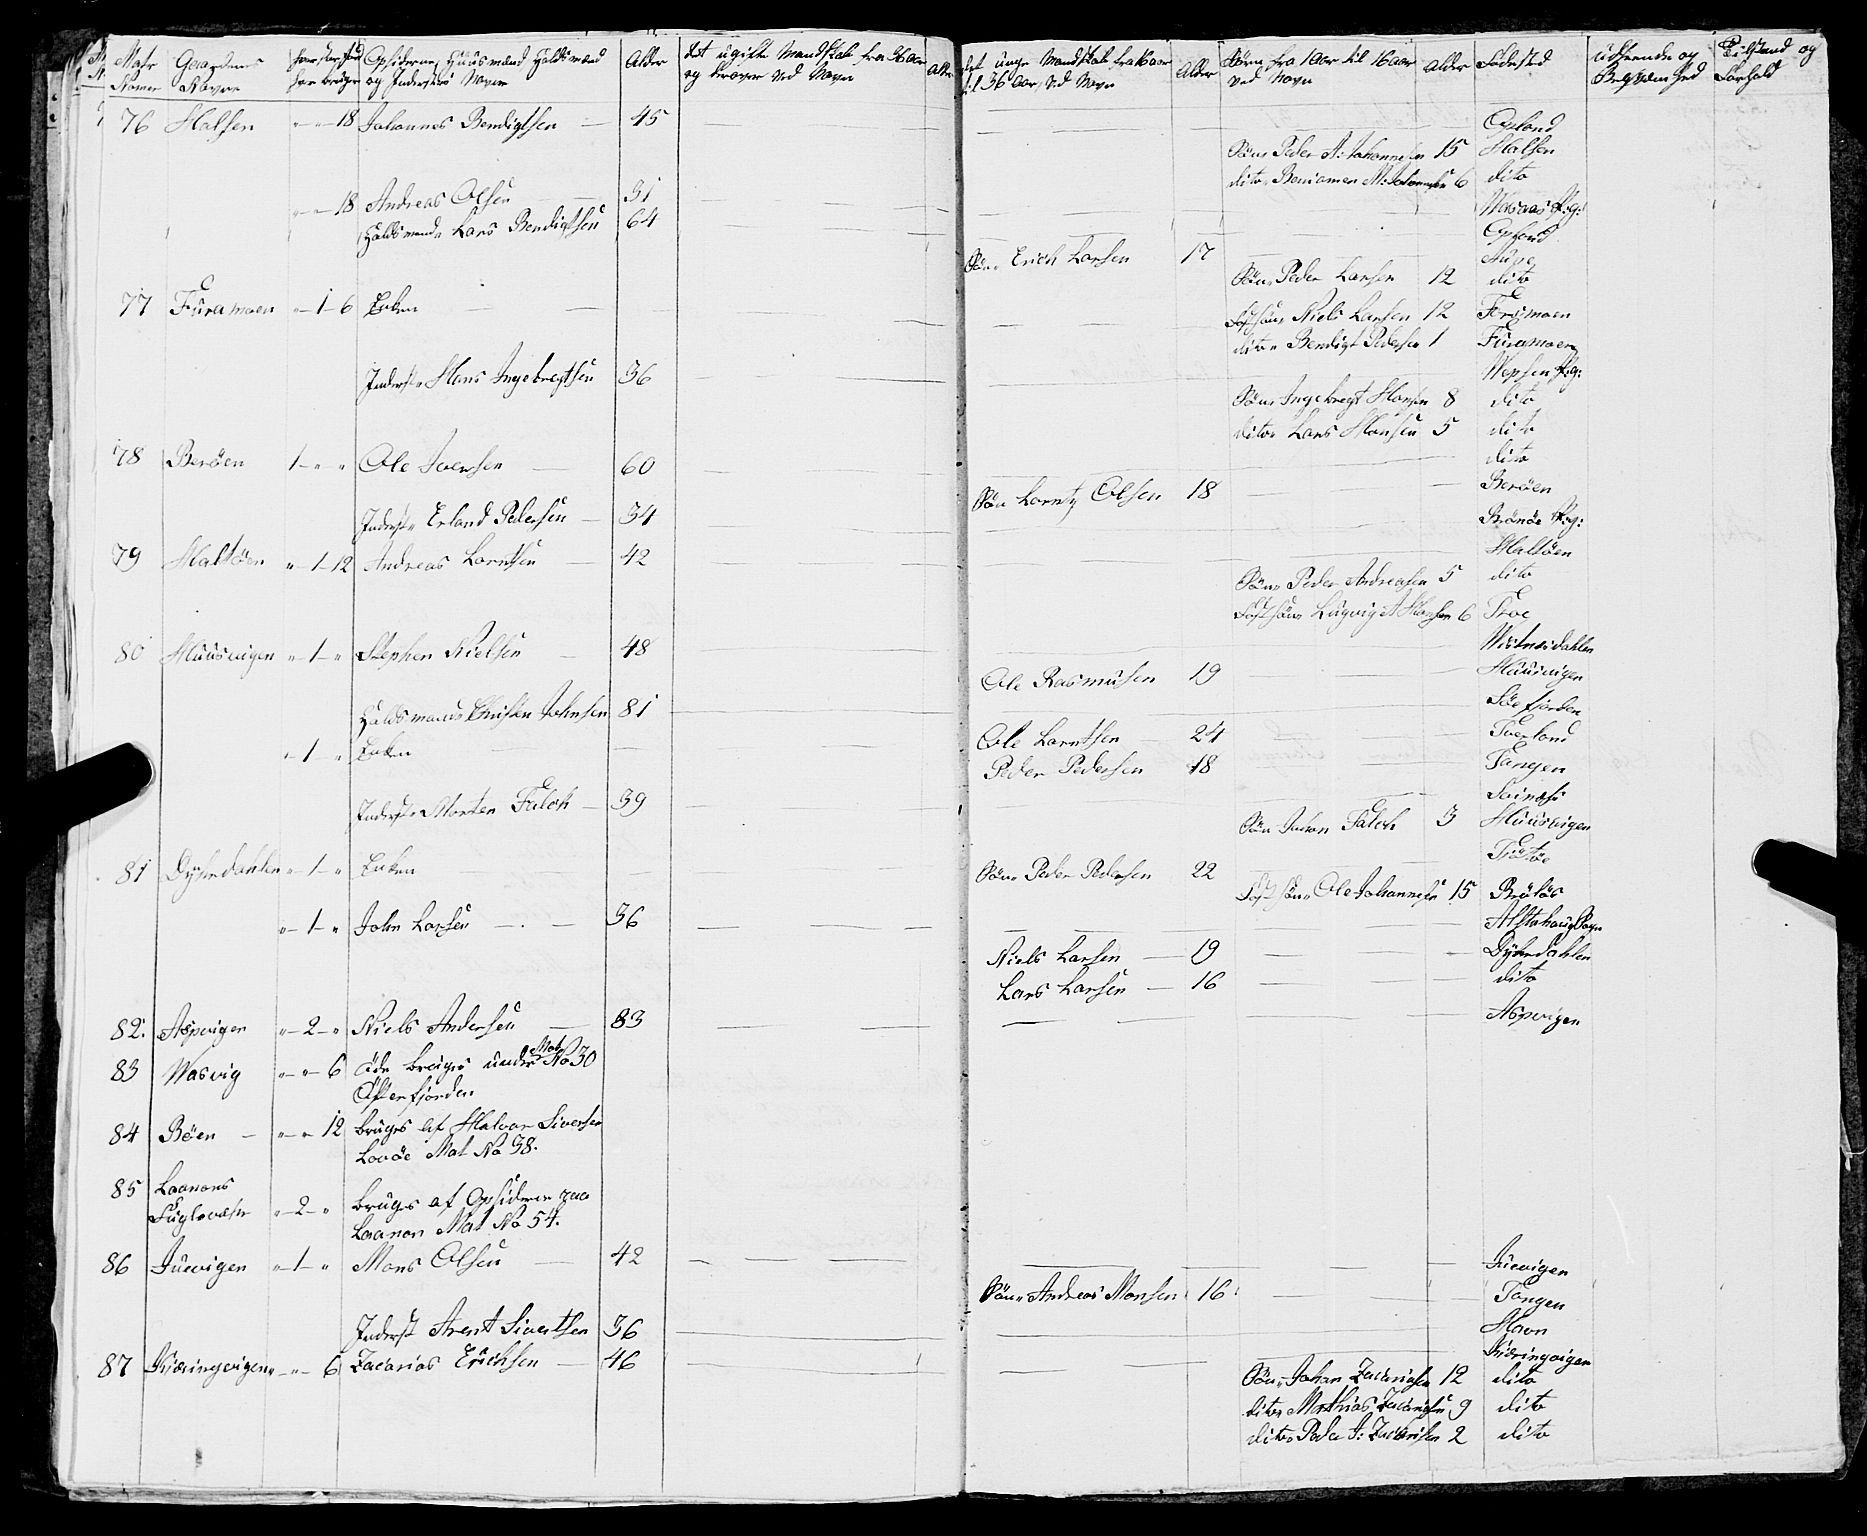 Matr Nomer | Gaardens Navne | Opsidernes, Huusmænd Holdsmænd og Inderstes Navne | Alder | det ugifte Mandskab fra 36 aar og derover ved Navn | Alder | det unge Mandskab fra 16 aar til 36 aar, ved Navn | Alder | Børn fra 1 aar til 16 aar ved Navn | Alder | Fødested | Udseende og Beqvemhed | Tilstand og Forhold
76 Halsen " - " 18 Johannes Bendigtsen — 45 — Opland
Søn Peder A: Johannesen 15 Halsen
dito Beniamen M: Johannesen 6 dito
" - " 18 Andreas Olsen — 31 — P:g:
Holdsmand Lars Bendigtsen 64 —
Søn Erich Larsen 17
Søn Peder Larsen 12 dito
77 Furumoen " - 1 - 6 Enken — Niels Larsen 12 Forsmoen
dito Bendigt Pedersen 1 Furumoen
Inderst Hans Ingebregtsen 36 — Wepsen P:g:
Søn Ingebregt Hansen 8 dito
dito Lars Hansen 5 dito
78 Berøen 1 - " - " Ole Iversen — 60 — dito
Søn Lorntz Olsen 18 — Berøen
Inderst Erland Pedersen — 34 — Brønøe P:g:
79 Haltøen " - 1 - 12 Andreas Lorntsen — 42 — Haltøen
Søn Peder Andreasen 5 dito
Ludvig A Hansen 6 Troe
80 Huusvigen " - 1 - " Stephen Nielsen — 48 — Wistnesdahlen
Ole Rasmusen 19 — Huusvigen
Holdsmand Christen Johnsen 81 — Søefjorden
" - 1 - " Enken — Ole Larntsen — 24 — Tverland
Peder Pedersen 18 — Tangen
Inderst Morten Falch — 39 —
Søn Johan Falch 3 Huusvigen
81 Dyhrdahlen " - 1 - " Enken — Søn Peder Pedersen 22
Ole Johannesen 15
" - 1 - " John Larsen — 36 — Alstahoug Sogn
Niels Larsen — 19 — Dyhrdahlen
Lars Larsen — 16 — dito
82. Aspvigen " - 2 - " Niels Andersen — 83 — Aspvigen
83 Wasvig " - " - 6 øde bruges under Mat No 30
Østerfjorden
84 Bøen — " - " 12 bruges af Halvor Siversen
Lovøe Mat No 38.
85 Laanans
Fuglevær " - 2 - " bruges af Opsiderne paa
Laanan Mat No 54.
86 Juevigen " - 1 - " Mons Olsen — 42 — Juevigen
Søn Andreas Monsen 16 — Tangen
Inderst Arent Sivertsen 36 — Havn
87 Kiæringvigen " - " - 6 Zacarias Erichsen — 46 — Kiæringvigen
Søn Johan Zacariasen 12 dito
dito Mathias Zacariasen 9 dito
dito Peder A: Zacariasen 2 dito